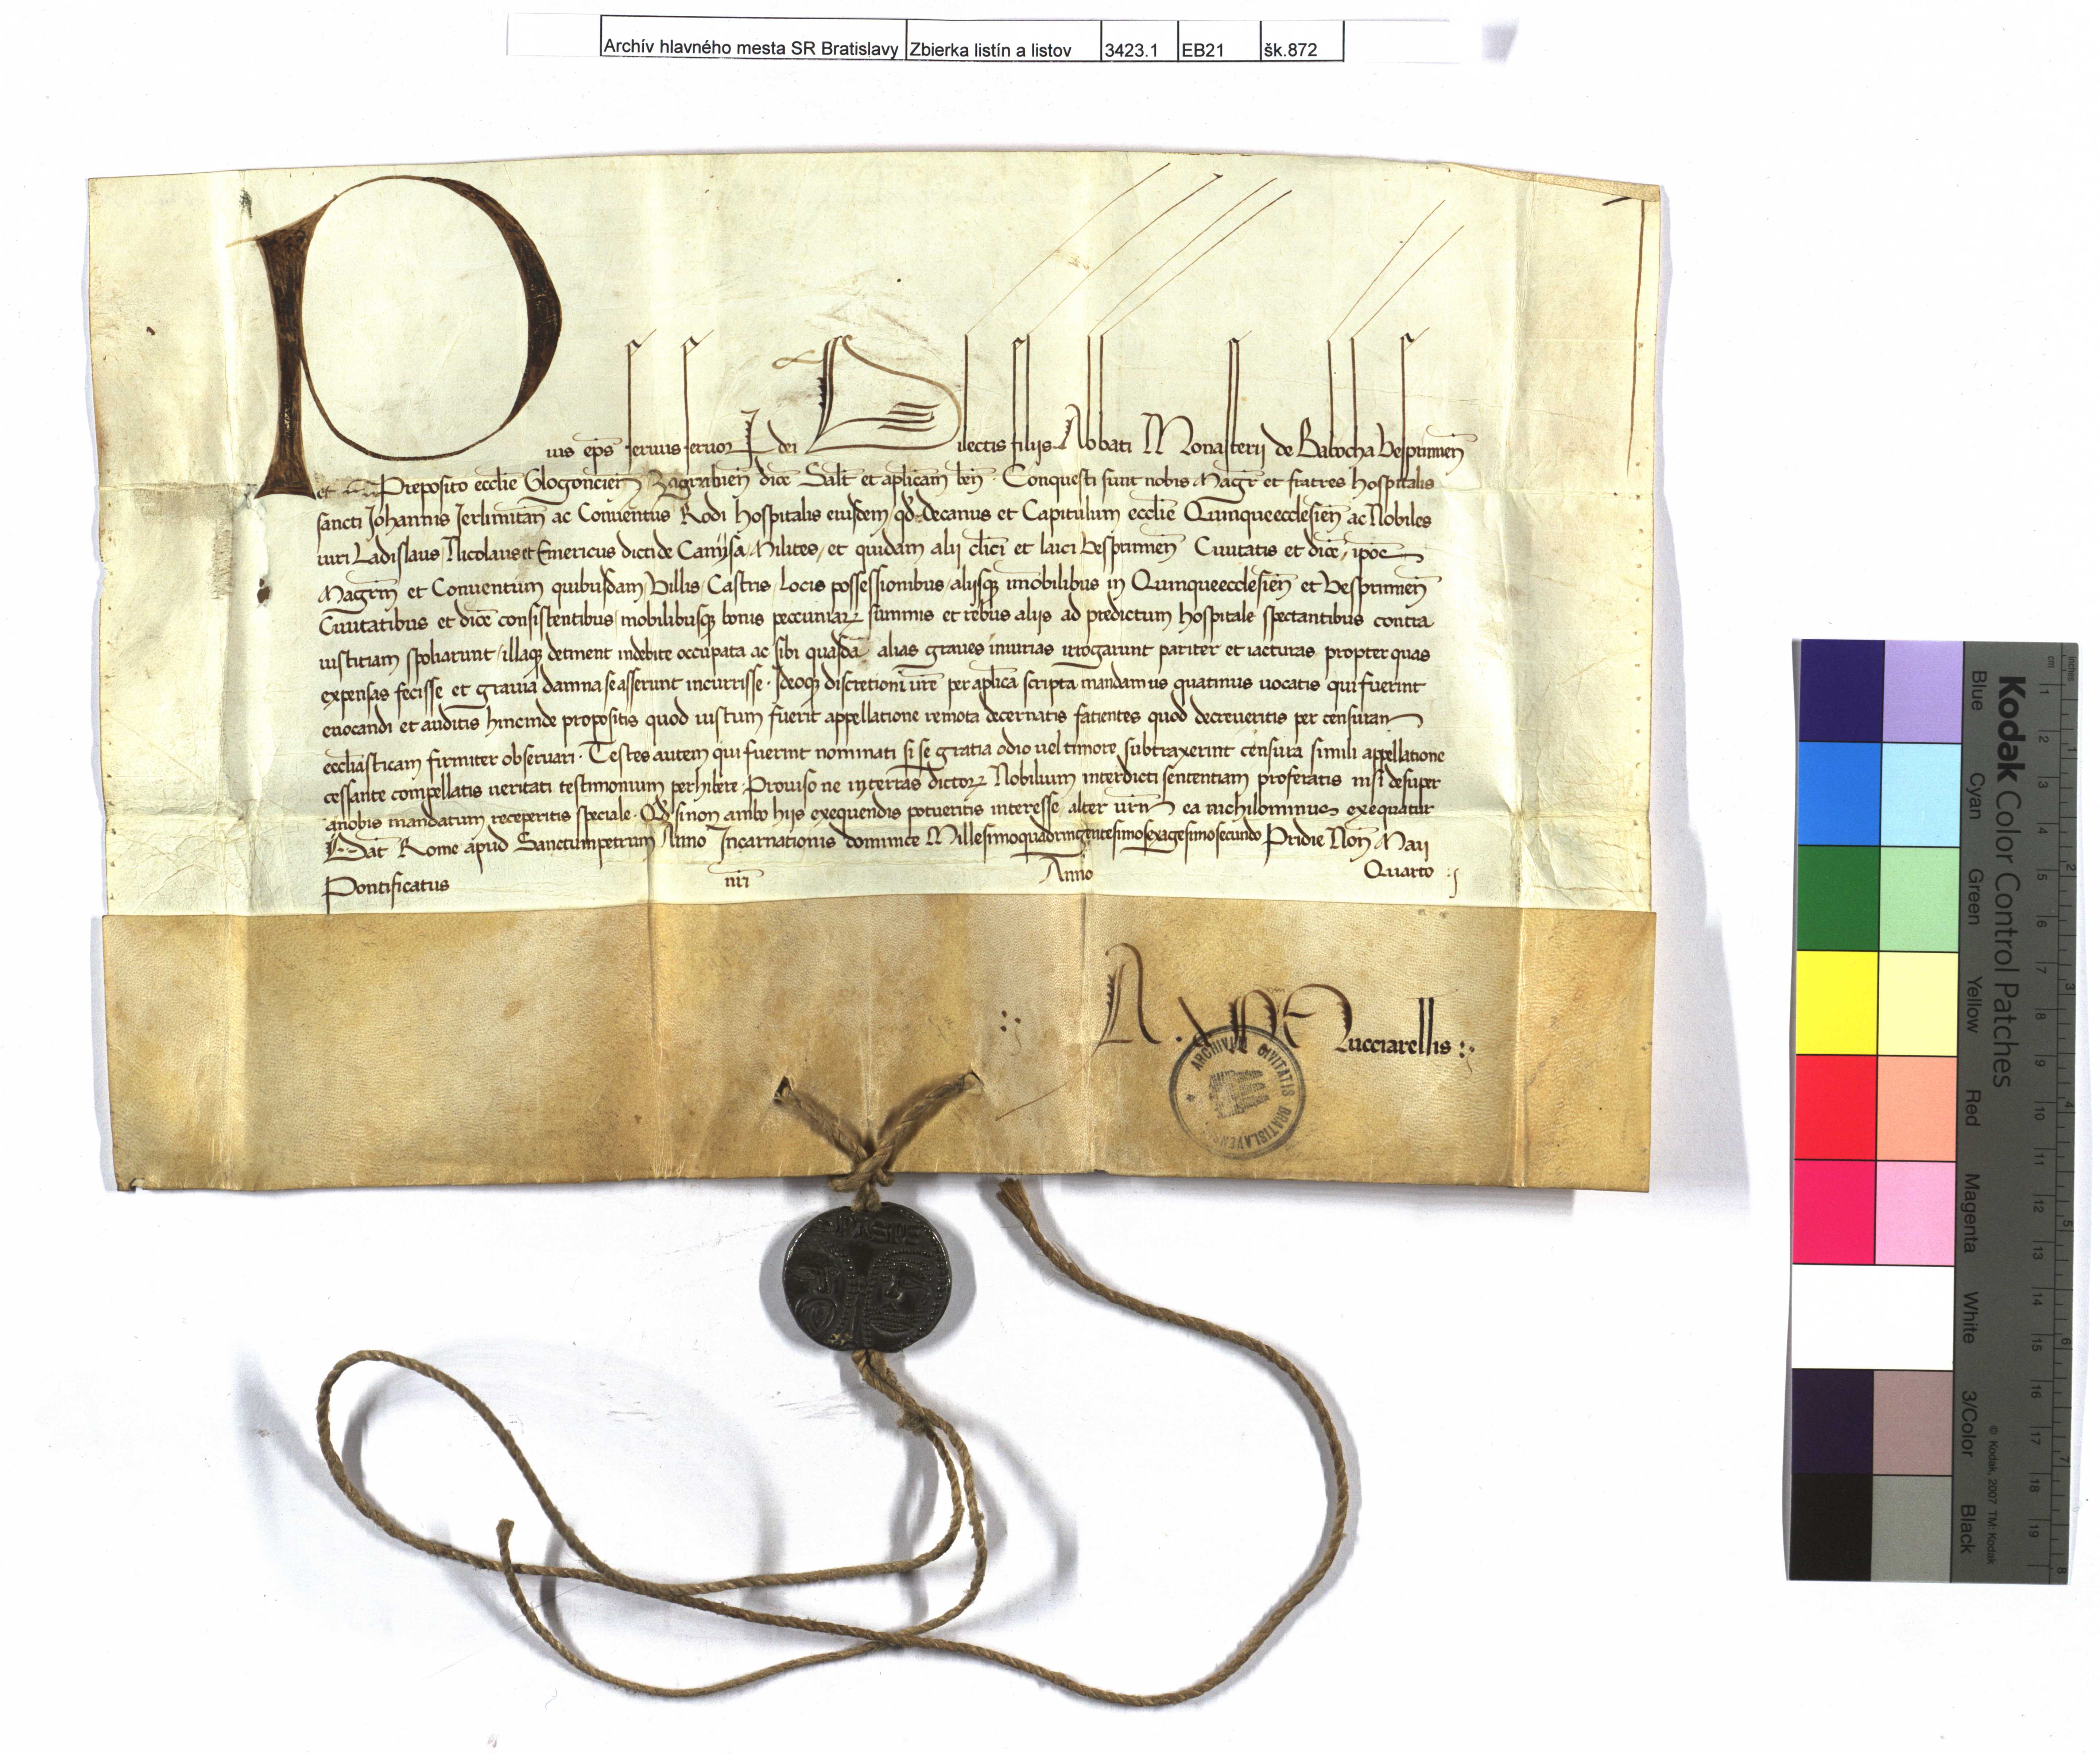 Archív hlavného mesta SR Bratislavy Zbierka listín a listov 3423.1 EB21 šk.872
Pius ep̄s seruus seruoꝝ dei Dilectis filijs Abbati Monasterij de Babocha Vesprimien̄
et Preposito eccl̄ie Glogoncien̄ Zagrabien̄ dioc̄ Salt̄ et aplicam̄ ben̄. Conquesti sunt nobis Magr̄ et fratres hospitalis
sancti Johannis Jerlimitan̄ ac Conuentus Rodi hospitalis eiusdem, qd̄ decanus et Capitulum eccl̄ie Quinqueecclesien̄ ac Nobiles
uiri Ladislaus, Nicolaus et Emericus dicti de Camysa Milites, et quidam alij cl̄ici et laici Vesprimien̄ Ciuitatis et dioc̄, ip̄os
Magrm̄ et Conuentum quibusdam Villis, Castris, locis possessionibus, alijsqꝫ im̄obilibus in Quinqueecclesien̄ et Vesprimien̄
Ciuitatibus et dioc̄ consistentibus, mobilibusqꝫ bonis peccuniarꝝ summis et rebus alijs ad predictum hospitale spectantibus contra
iustitiam spoliarunt, illaqꝫ detinent indebite occupata ac sibi quasdā alias graues iniurias irrogarunt pariter et iacturas propter quas
expensas fecisse et grauia damna se asserunt incurrisse. Ideoqꝫ discretioni ur̄e per apl̄ica scripta mandamus quatinus uocatis qui fuerint
euocandi et auditis hincinde propositis quod iustum fuerit appellatione remota decernatis fatientes quod decreueritis per censuram
eccl̄iasticam firmiter obseruari. Testes autem qui fuerint nominati si se gratia odio uel timore subtraxerint censura simili appellatione
cessante compellatis ueritati testimonium perhibere. Prouiso ne in terras dictorꝝ Nobilium interdicti sententiam proferatis nisi desuper
anobis mandatum receperitis speciale. Qd̄ si non ambo hijs exequendis potueritis interesse alter ur̄m ea nichilominus exequatur
Dat̄ Rome apud Sanctumpetrum Anno Incarnationis dominice Millesimoquadringentesimosexagesimosecundo Pridie Non̄ Maij
Pontificatus nr̄i Anno Quarto
A. de Mucciarellis
ARCHIVUM CIVITATIS BRATISLAVENSIS
PASPE
Kodak Color Control Patches
Blue Cyan Green Yellow Red Magenta White 3/Color Black
© Kodak, 2007 TM: Kodak
inches 1 2 3 4 5 6 7 8
cm 1 2 3 4 5 6 7 8 9 10 11 12 13 14 15 16 17 18 19